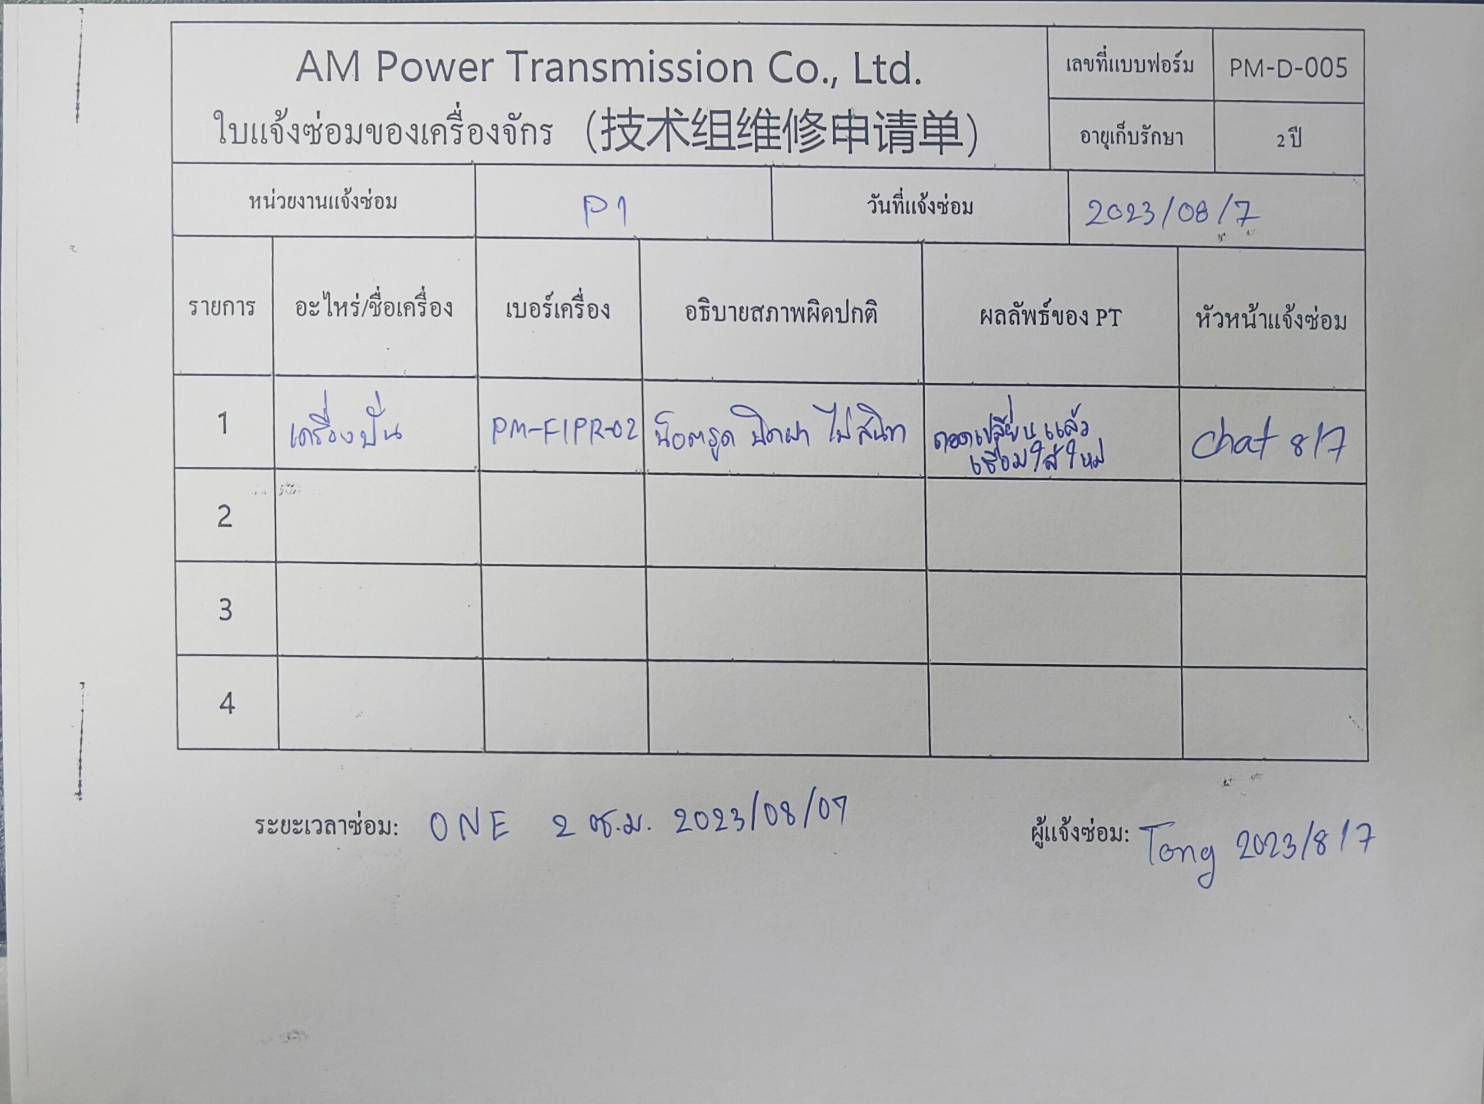 AM Power Transmission Co., Ltd.
ใบแจ้งซ่อมของเครื่องจักร (技术组维修申请单)
เลขที่แบบฟอร์ม PM-D-005
อายุเก็บรักษา 2 ปี
หน่วยงานแจ้งซ่อม P1 วันที่แจ้งซ่อม 2023/08/7
รายการ อะไหร่/ชื่อเครื่อง เบอร์เครื่อง อธิบายสภาพผิดปกติ ผลลัพธ์ของ PT หัวหน้าแจ้งซ่อม
1 เครื่องปั่น PM-FIPR-02 น็อตรูด ปิดฝา ไม่สนิท ถอดเปลี่ยนแล้ว
เชื่อมใส่ใหม่ Chat 8/7
2
3
4
ระยะเวลาซ่อม: ONE 2 ช.ม. 2023/08/07
ผู้แจ้งซ่อม: Tong 2023/8/7